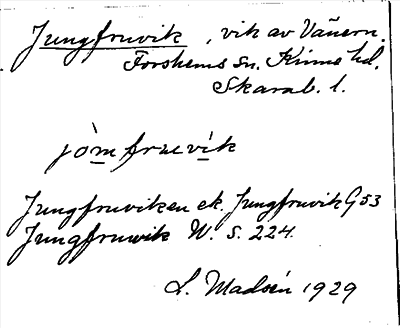 Jungfruvik, vik av Vänern.
Forshems sn. Kinne hd.
Skarab. l.
jòmfruvík
Jungfruviken ek. Jungfruvik G 53
Jungfruvik W. S. 224.
L. Madsén 1929